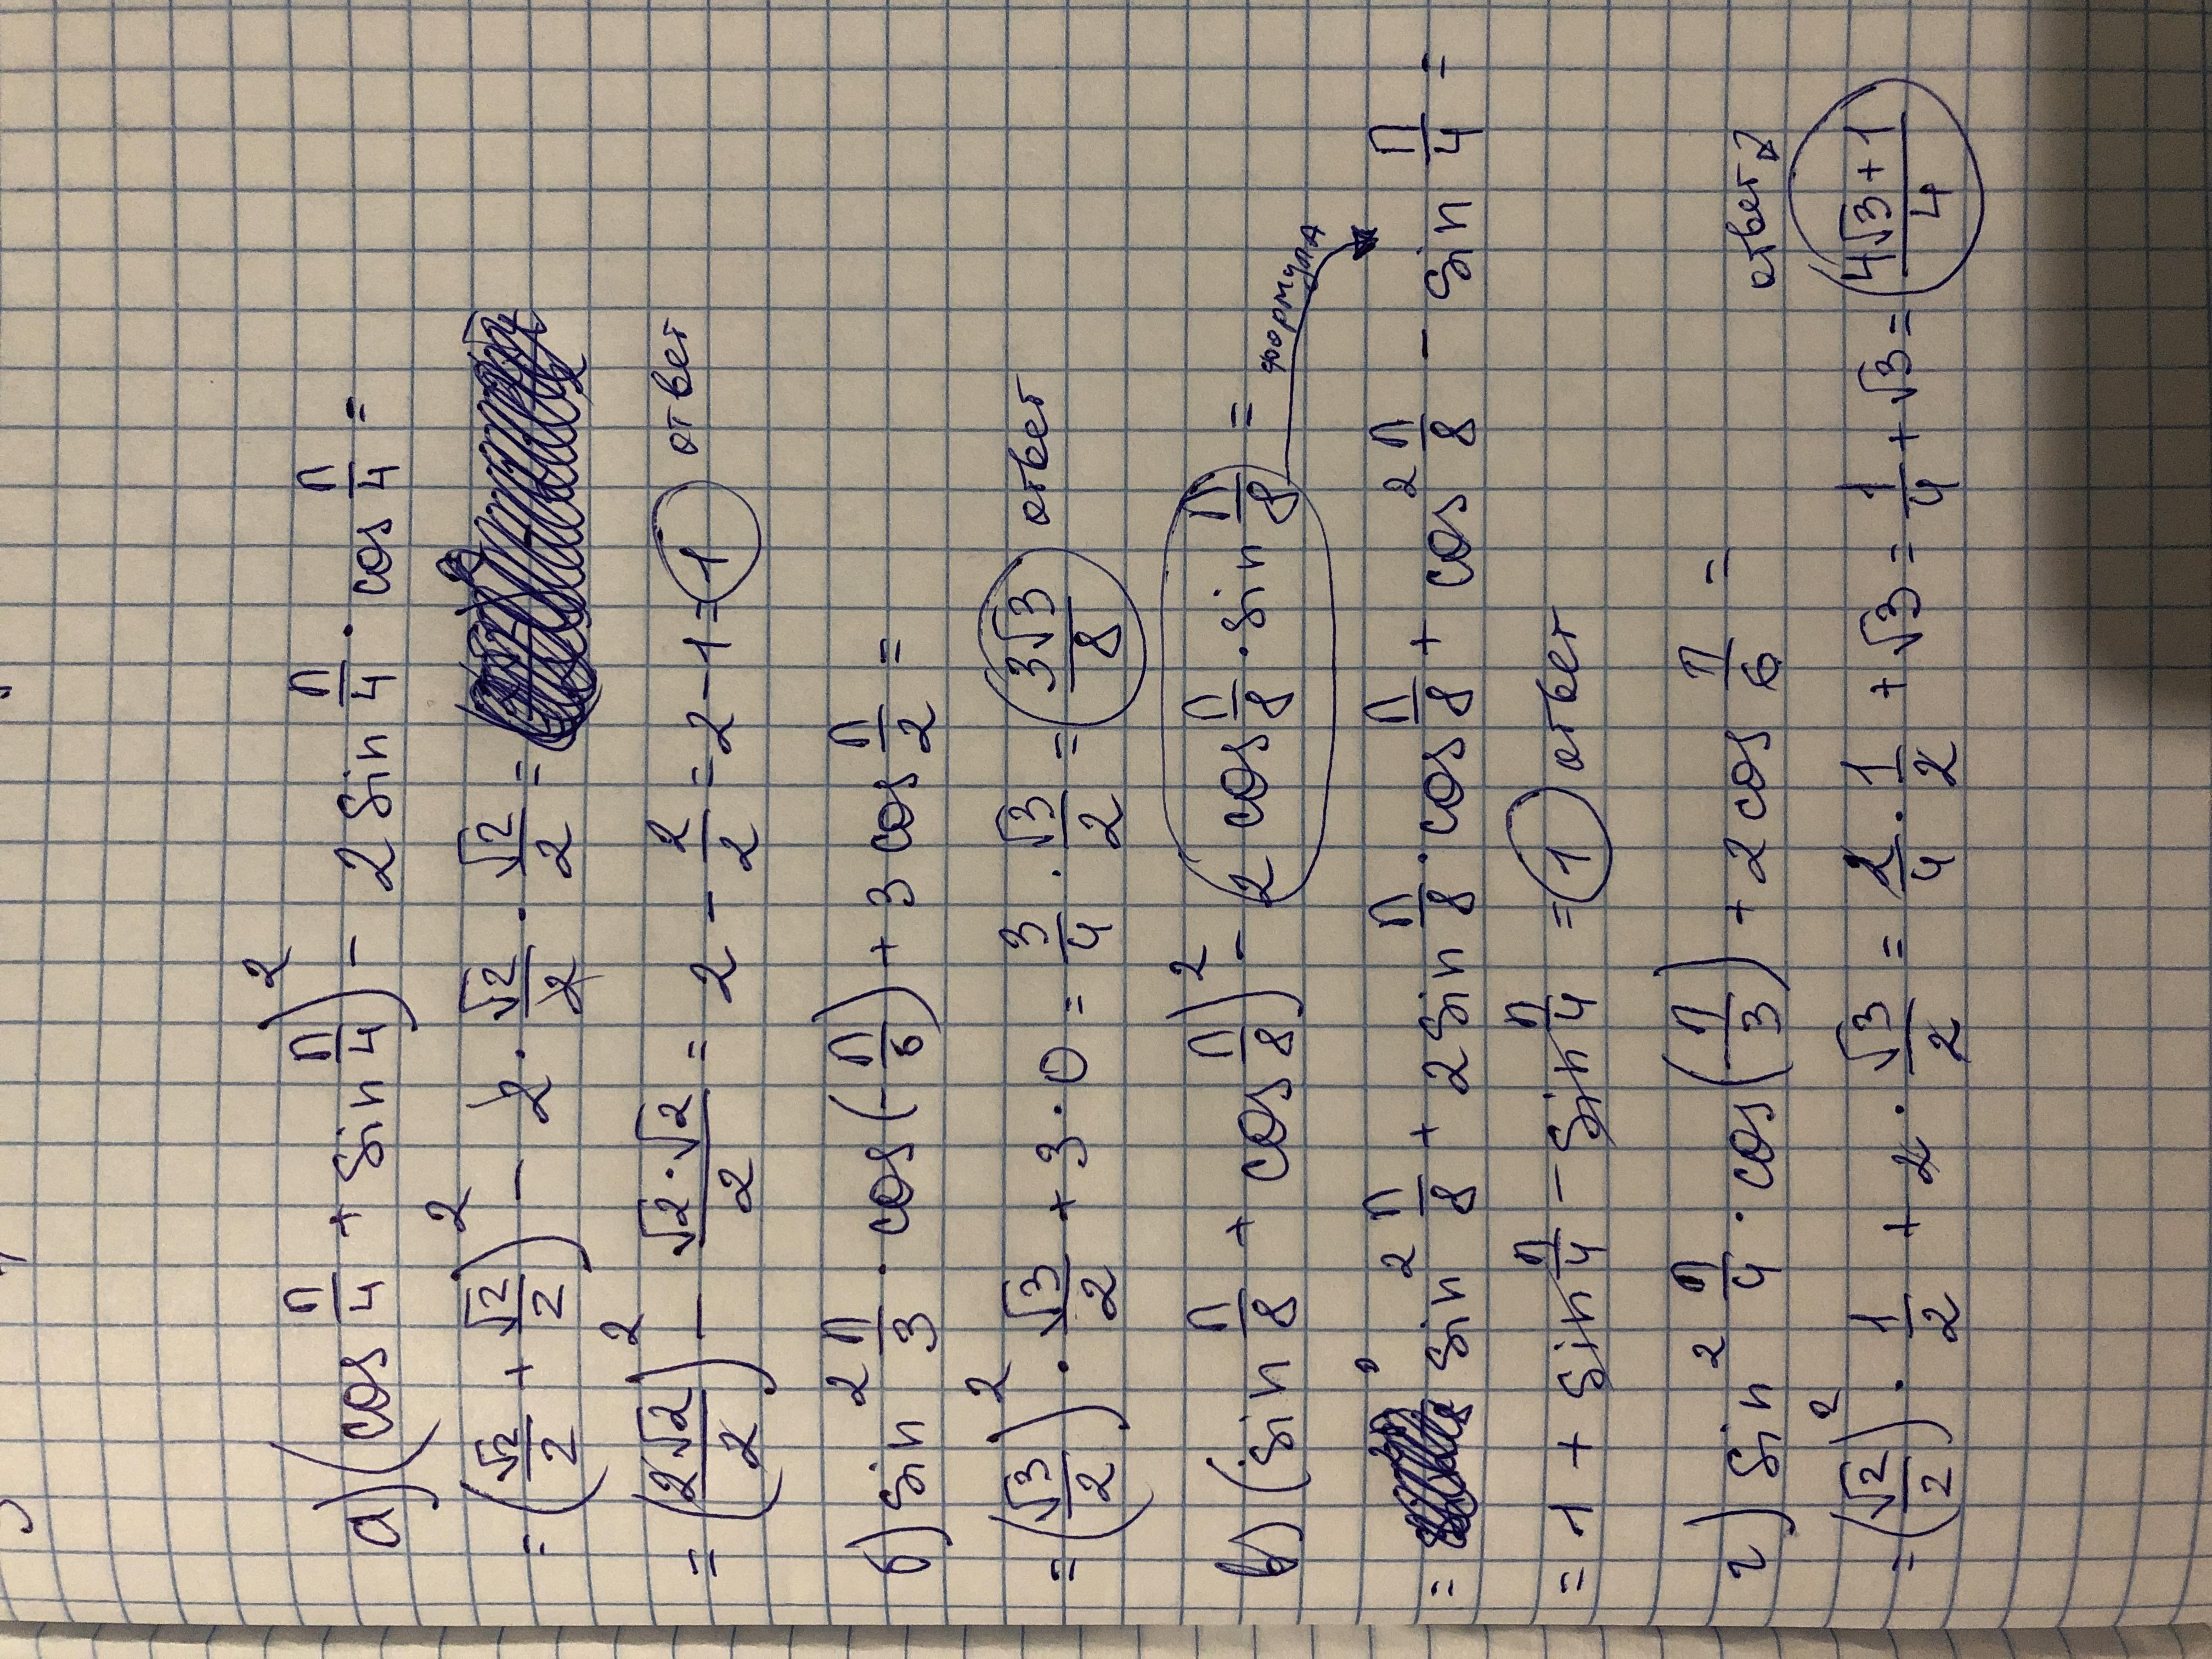 а) (cos п/4 + sin п/4)² - 2 sin п/4 · cos п/4 =
= (√2/2 + √2/2)² - 2 · √2/2 · √2/2 =
= (2√2/2)² - √2·√2/2 = 2 - 2/2 = 2-1 = 1 ответ
б) sin² п/3 · cos(-п/6) + 3 cos п/2 =
= (√3/2)² · √3/2 + 3·0 = 3/4 · √3/2 = 3√3/8 ответ
в) (sin п/8 + cos п/8)² - 2 cos п/8 · sin п/8 =
формула
= sin² п/8 + 2 sin п/8 · cos п/8 + cos² п/8 - sin п/4 =
= 1 + sin п/4 - sin п/4 = 1 ответ
г) sin² п/4 · cos(-п/3) + 2 cos п/6 =
ответ
= (√2/2)² · 1/2 + 2 · √3/2 = 2/4 · 1/2 + √3 = 1/4 + √3 = 4√3+1/4